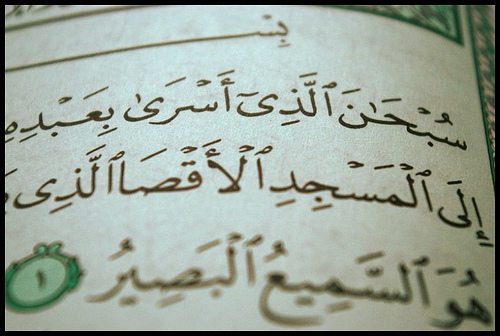 بِسْ
سُبْحَٰنَ ٱلَّذِىٓ أَسْرَىٰ بِعَبْدِهِ
إِلَى ٱلْمَسْجِدِ ٱلْأَقْصَا ٱلَّذِى
هُوَ ٱلسَّمِيعُ ٱلْبَصِيرُ ١